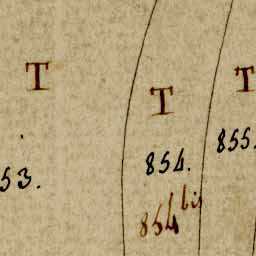 T
53.
T
854.
854 bis
T
855.